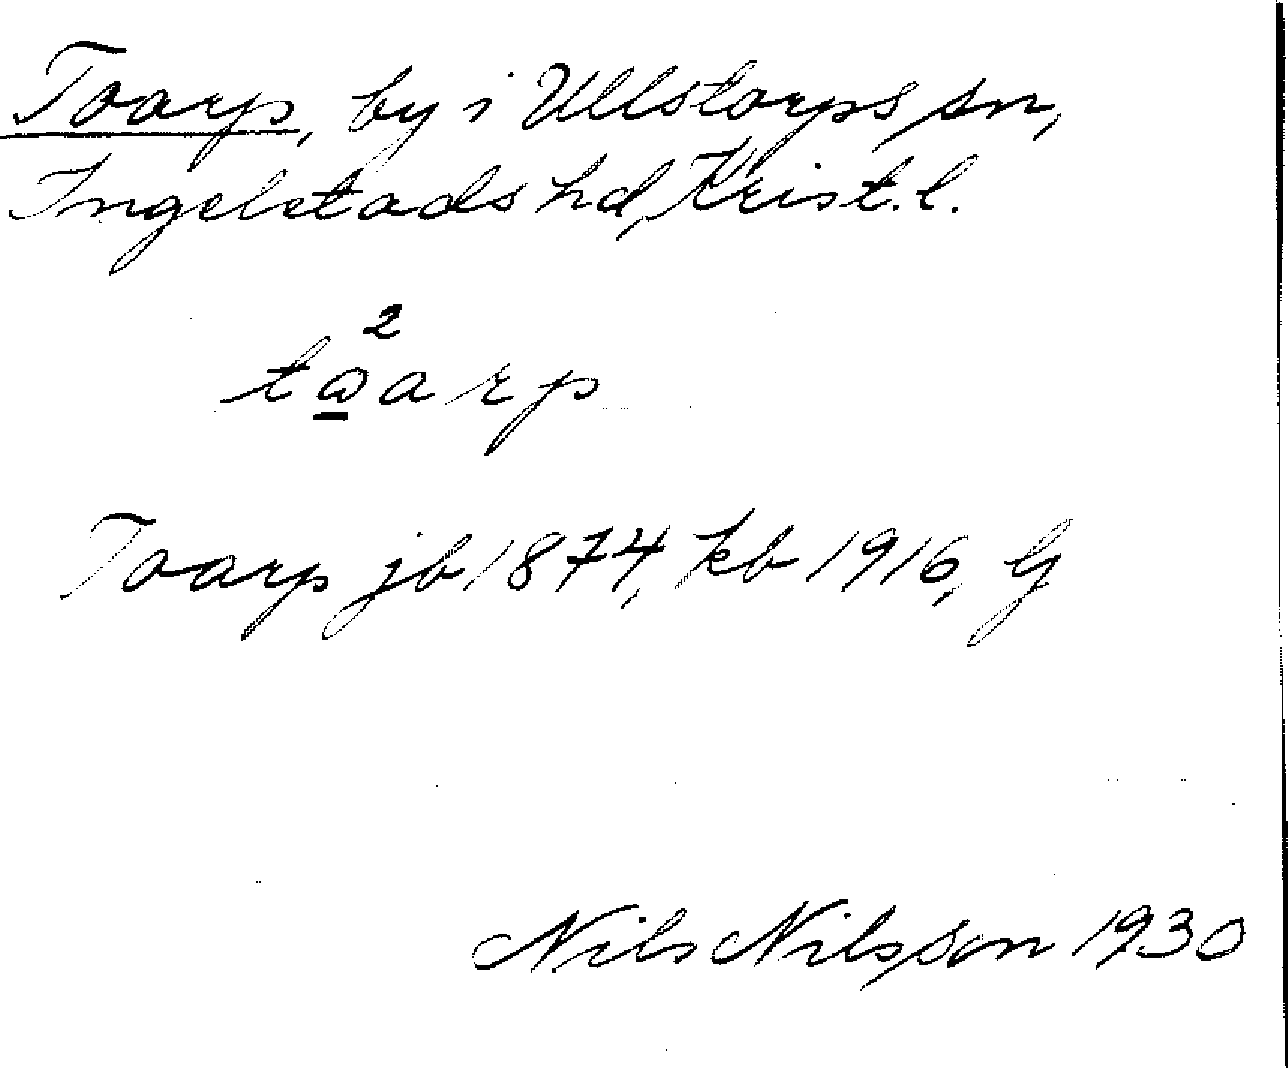 Toarp, by i Ullstorps sn,
Ingelstads hd, Krist. l.
2
tɷarp
Toarp jb 1874, kb 1916, G
Nils Nilsson 1930